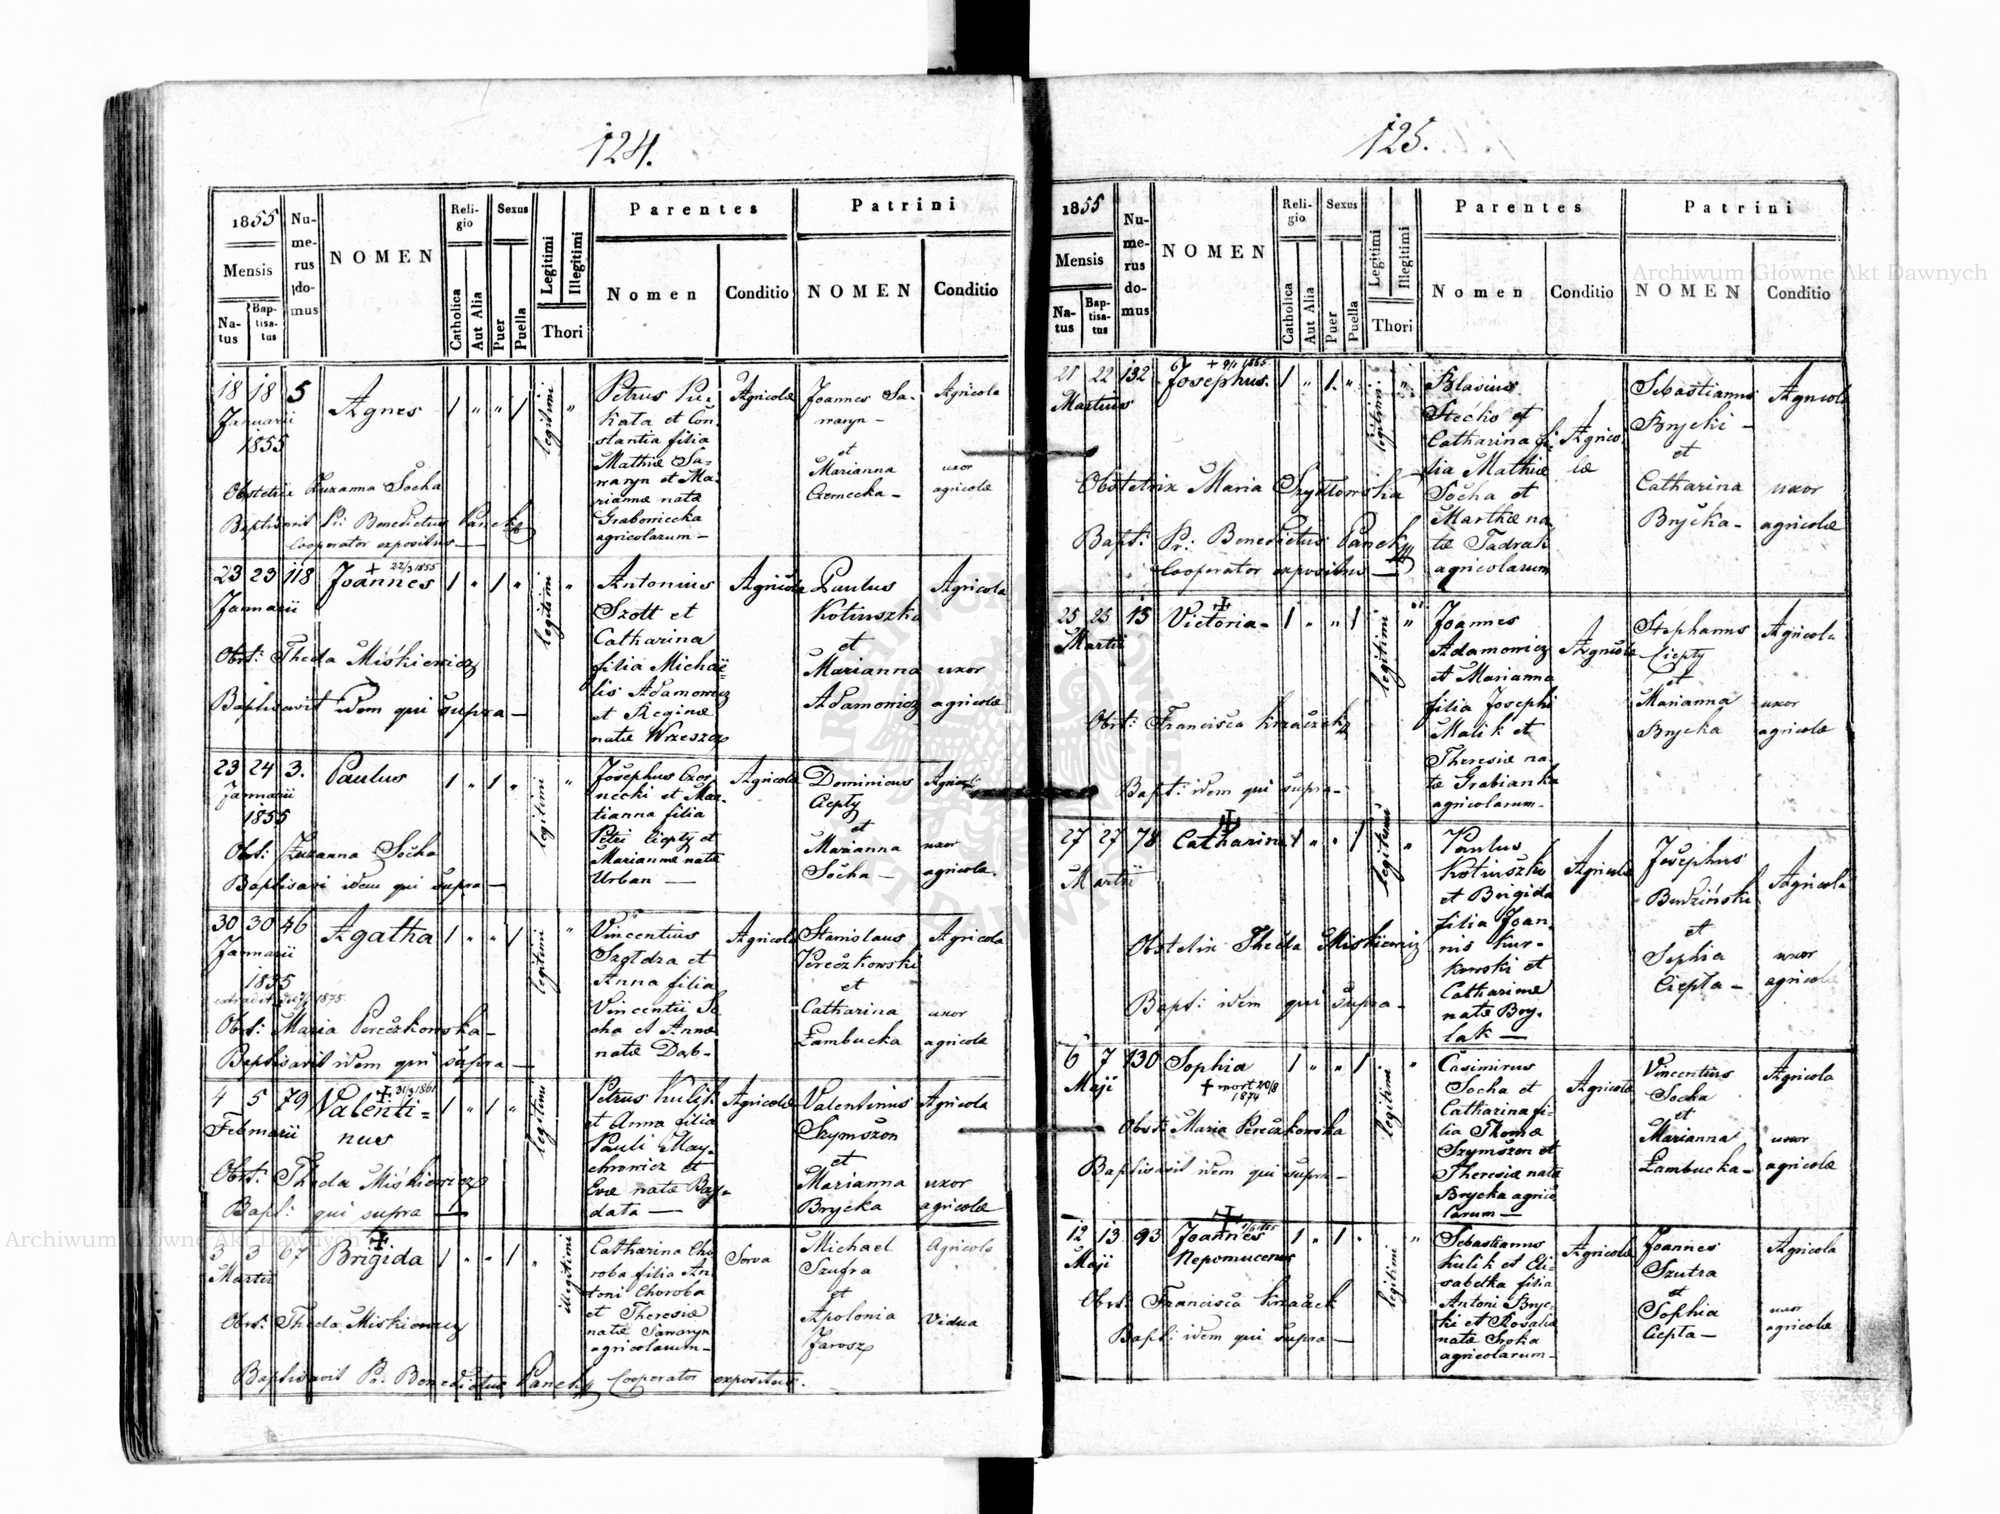 124.
1855
Mensis
Natus
Baptisatus
Numerus domus
NOMEN
Religio
Catholica
Aut Alia
Sexus
Puer
Puella
Legitimi
Illegitimi
Thori
Parentes
Nomen
Conditio
Patrini
NOMEN
Conditio
18 18 5 Agnes 1 " " 1 legitimi "
Januarii
1855
Petrus Pu-
kata et Con-
stantia filia
Mathiæ Sa-
waryn et Ma-
riannæ natæ
Graboniecka
agricolarum
Agricolæ
Joannes Sa-
waryn
et
Marianna
Czernecka
Agricola
uxor
agricolæ
Obstetrix Zuzanna Socha
Baptisavit Pr: Benedictus Panek
Cooperator expositus
23 23 118 Joannes 1 " 1 " legitimi "
+ 22/3 1855
Januarii
Antonius
Szott et
Catharina
filia Michaë-
lis Adamowicz
et Reginæ
natæ Wrzeszcz
Agricola
Paulus
Kotiuszko
et
Marianna
Adamowicz
Agricola
uxor
agricolæ
Obst: Theda Miśkiewicz
Baptisavit idem qui supra
23 24 3. Paulus 1 " 1 " legitimi "
Januarii
1855
Josephus Czer-
necki et Mar-
tianna filia
Petri Ciepty et
Mariannæ natæ
Urban
Agricola
Dominicus
Ciepty
et
Marianna
Socha
Agricola
uxor
agricola.
Obst: Zuzanna Socha
Baptisavi idem qui supra
30 30 46 Agatha 1 " " 1 legitimi "
Januarii
1855
Vincentius
et
Anna filia
Vincentii So-
cha et Annæ
natæ Dąb-
Agricola
Stanislaus
Pereczkowski
et
Catharina
Łambucka
Agricola
uxor
agricolæ
Obst: Maria Pereczkowska
Baptisavit idem qui supra
4 5 79 Valenti-
nus 1 " 1 " legitimi
+ 31/3 1861
Februarii
Petrus Kulik
et Anna filia
Pauli May-
chrowicz et
Evæ natæ Bay-
data
Agricolæ
Valentinus
Szymszon
et
Marianna
Brycka
Agricola
uxor
agricolæ
Obst: Theda Miśkiewicz
Bapt: qui supra
3 3 67 Brigida 1 " " 1 " illegitimi
Martii
Catharina Cho-
roba filia An-
toni Choroba
et Theresiæ
natæ Sawaryn
agricolarum
Serva
Michael
Szufra
et
Apolonia
Jarosz
Agricola
Vidua
Obst: Theda Miskiewicz
Baptisavit Pr. Benedictus Panek Cooperator expositus.
125.
1855
Mensis
Natus
Baptisatus
Numerus domus
NOMEN
Religio
Catholica
Aut Alia
Sexus
Puer
Puella
Legitimi
Illegitimi
Thori
Parentes
Nomen
Conditio
Patrini
NOMEN
Conditio
21 22 132 Josephus. 1 " 1. " legitimi "
Martius
Blasius
Stecko et
Catharina fi-
lia Mathiæ
Socha et
Marthæ na-
tæ Tadrak
agricolarum
Agrico-
læ
Sebastianus
Brycki
et
Catharina
Brycka
Agricola
uxor
agricolæ
Obstetrix Maria Szydłowska
Bapt: Pr: Benedictus Panek
Cooperator expositus
25 25 15 Victoria 1 " " 1 legitimi "
Martii
Joannes
Adamowicz
et Marianna
filia Josephi
Malik et
Theresiæ na-
tæ Grabianka
agricolarum
Agricola
Stephanus
Ciepty
et
Marianna
Brycka
Agricola
uxor
agricolæ
Obst: Francisca Krzaczek
Bapt: idem qui supra
27 27 78 Catharina 1 " " 1 legitimi "
Martii
Paulus
Kotiuszko
et Brigida
filia Joan-
nis Kur-
kowski et
Catharinæ
natæ Bry-
lak
Agricola
Josephus
Budziński
et
Sophia
Ciepta
Agricola
uxor
agricolæ
Obstetrix Theda Miskiewicz
Bapt: idem qui supra
6 7 130 Sophia 1 " " 1 legitimi "
+ mort 20/8
1874
Maji
Casimirus
Socha et
Catharina fi-
lia Thomæ
Szymszon et
Theresiæ natæ
Brycka agrico-
larum
Agricolæ
Vincentius
Socha
et
Marianna
Łambucka
Agricola
uxor
agricolæ
Obst: Maria Pereczkowska
Baptisavit idem qui supra
12 13 93 Joannes
Nepomucenus 1 " 1 " legitimi "
Maji
Sebastianus
Kulik et Eli-
sabetha filia
Antoni Bryc-
ki et Rosaliæ
natæ Sroka
agricolarum
Agricolæ
Joannes
Szutra
et
Sophia
Ciepta
Agricola
uxor
agricolæ
Obst: Francisca Krzaczek
Bapt: idem qui supra
Archiwum Główne Akt Dawnych
Archiwum Główne Akt Dawnych